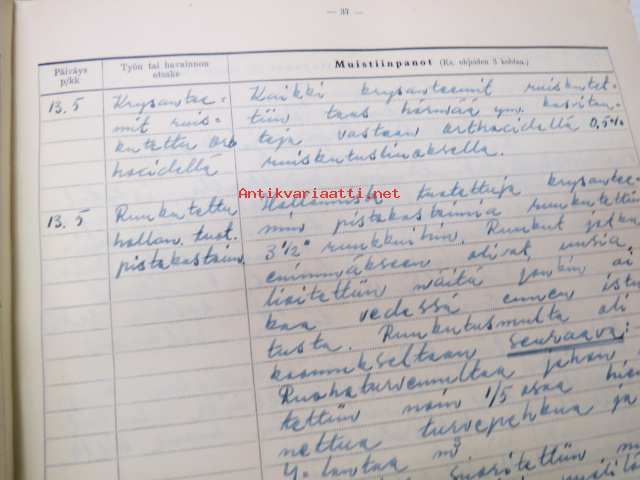 — 37 —
Päiväys p/kk
Työn tai havainnon otsake
Muistiinpanot (Ks. ohjeiden 3 kohtaa.)
13.5
Krysantee-
mit ruis-
kutettu ort
hocidellä
Kaikki krysanteemit ruiskutet-
tiin taas härmää ym. kasvitau-
teja vastaan orthocidellä 0,5%
ruiskutusliuoksella.
Antikvariaatti.net
13.5
Ruukutettu
hollan. tuot.
pistokastaim.
Hollannista tuotettuja krysantee-
min pistokastaimia ruukutettiin
3 1/2" ruukkuihin. Ruukut jotka
enimmäkseen olivat uusia,
liotettiin näitä jonkin ai
kaa vedessä ennen istu
tusta. Ruukutusmulta oli
kokoomukseltaan seuraava:
Ruohoturvemultaa johon
tettiin noin 1/5 osaa hie
nettua turvepehkua ja
Y-lantaa m³
suoritettiin